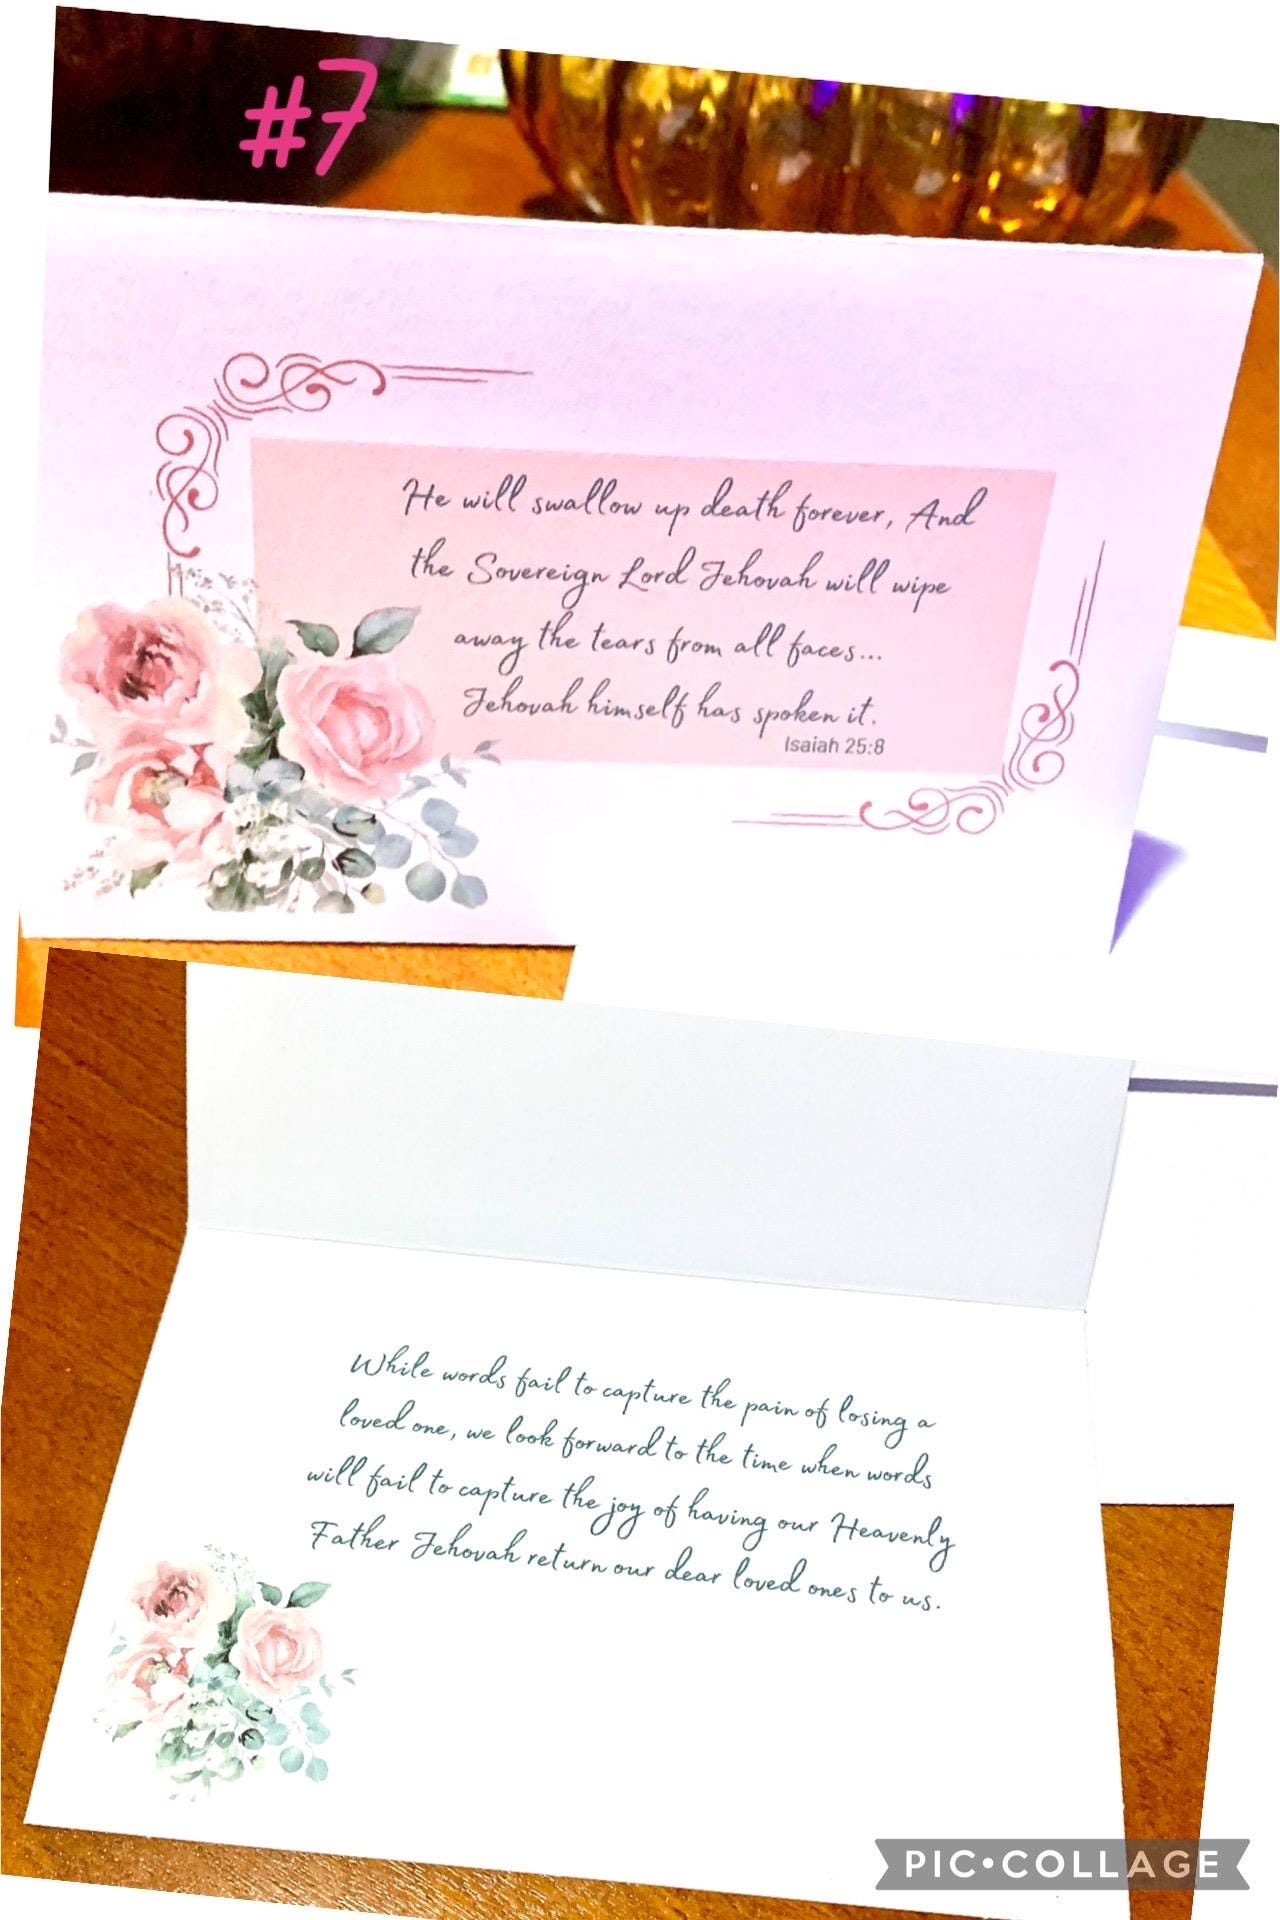 #7
He will swallow up death forever, And
the Sovereign Lord Jehovah will wipe
away the tears from all faces...
Jehovah himself has spoken it.
Isaiah 25:8
While words fail to capture the pain of losing a
loved one, we look forward to the time when words
will fail to capture the joy of having our Heavenly
Father Jehovah return our dear loved ones to us.
PIC•COLLAGE